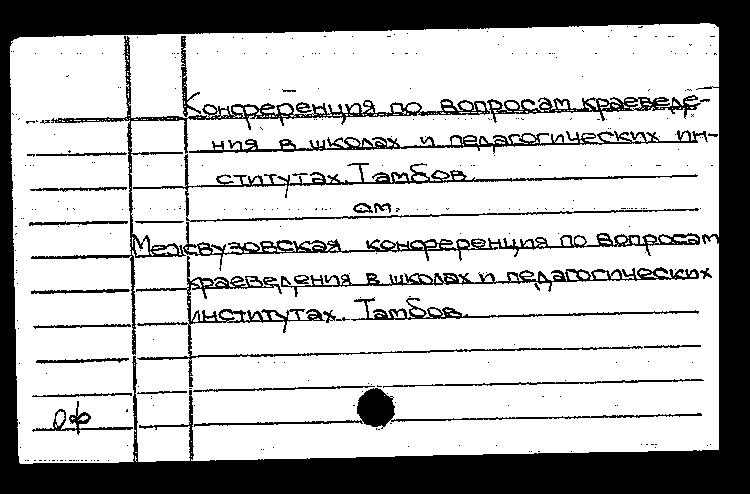 Конференция по вопросам краеведе-
ния в школах и педагогических ин-
ститутах. Тамбов.
см.
Межвузовская конференция по вопросам
краеведения в школах и педагогических
институтах. Тамбов.
Оф